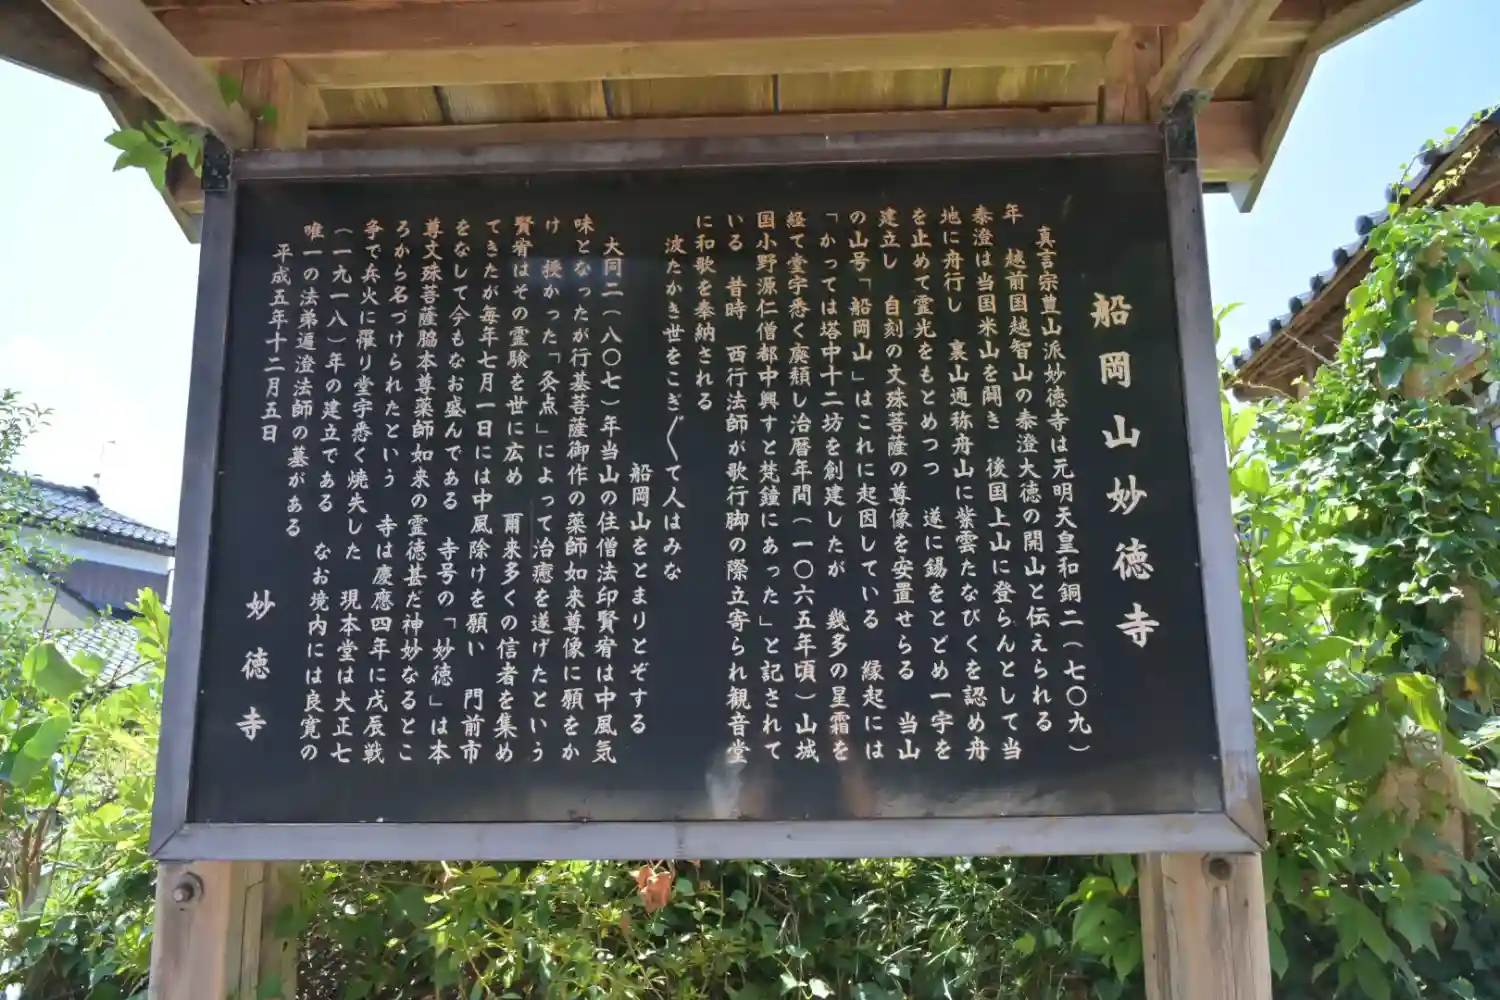 船岡山妙徳寺
真言宗豊山派妙徳寺は元明天皇和銅二（七〇九）
年　越前国越智山の泰澄大徳の開山と伝えられる
泰澄は当国米山を開き　後国上山に登らんとして当
地に舟行し　裏山通称舟山に紫雲たなびくを認め舟
を止めて霊光をもとめつつ　遂に錫をとどめ一宇を
建立し　自刻の文殊菩薩の尊像を安置せらる　当山
の山号「船岡山」はこれに起因している　縁起には
「かっては塔中十二坊を創建したが　幾多の星霜を
経て堂宇悉く廃頽し治暦年間（一〇六五年頃）山城
国小野源仁僧都中興すと梵鐘にあった」と記されて
いる　昔時　西行法師が歌行脚の際立寄られ観音堂
に和歌を奉納される
波たかき世をこぎ〱て人はみな
船岡山をとまりとぞする
大同二（八〇七）年当山の住僧法印賢宥は中風気
味となったが行基菩薩御作の薬師如来尊像に願をか
け　授かった「灸点」によって治癒を遂げたという
賢宥はその霊験を世に広め　爾来多くの信者を集め
てきたが毎年七月一日には中風除けを願い　門前市
をなして今もなお盛んである　寺号の「妙徳」は本
尊文殊菩薩脇本尊薬師如来の霊徳甚だ神妙なるとこ
ろから名づけられたという　寺は慶應四年に戊辰戦
争で兵火に羅り堂宇悉く焼失した　現本堂は大正七
（一九一八）年の建立である　なお境内には良寛の
唯一の法弟遍澄法師の墓がある
平成五年十二月五日
妙徳寺